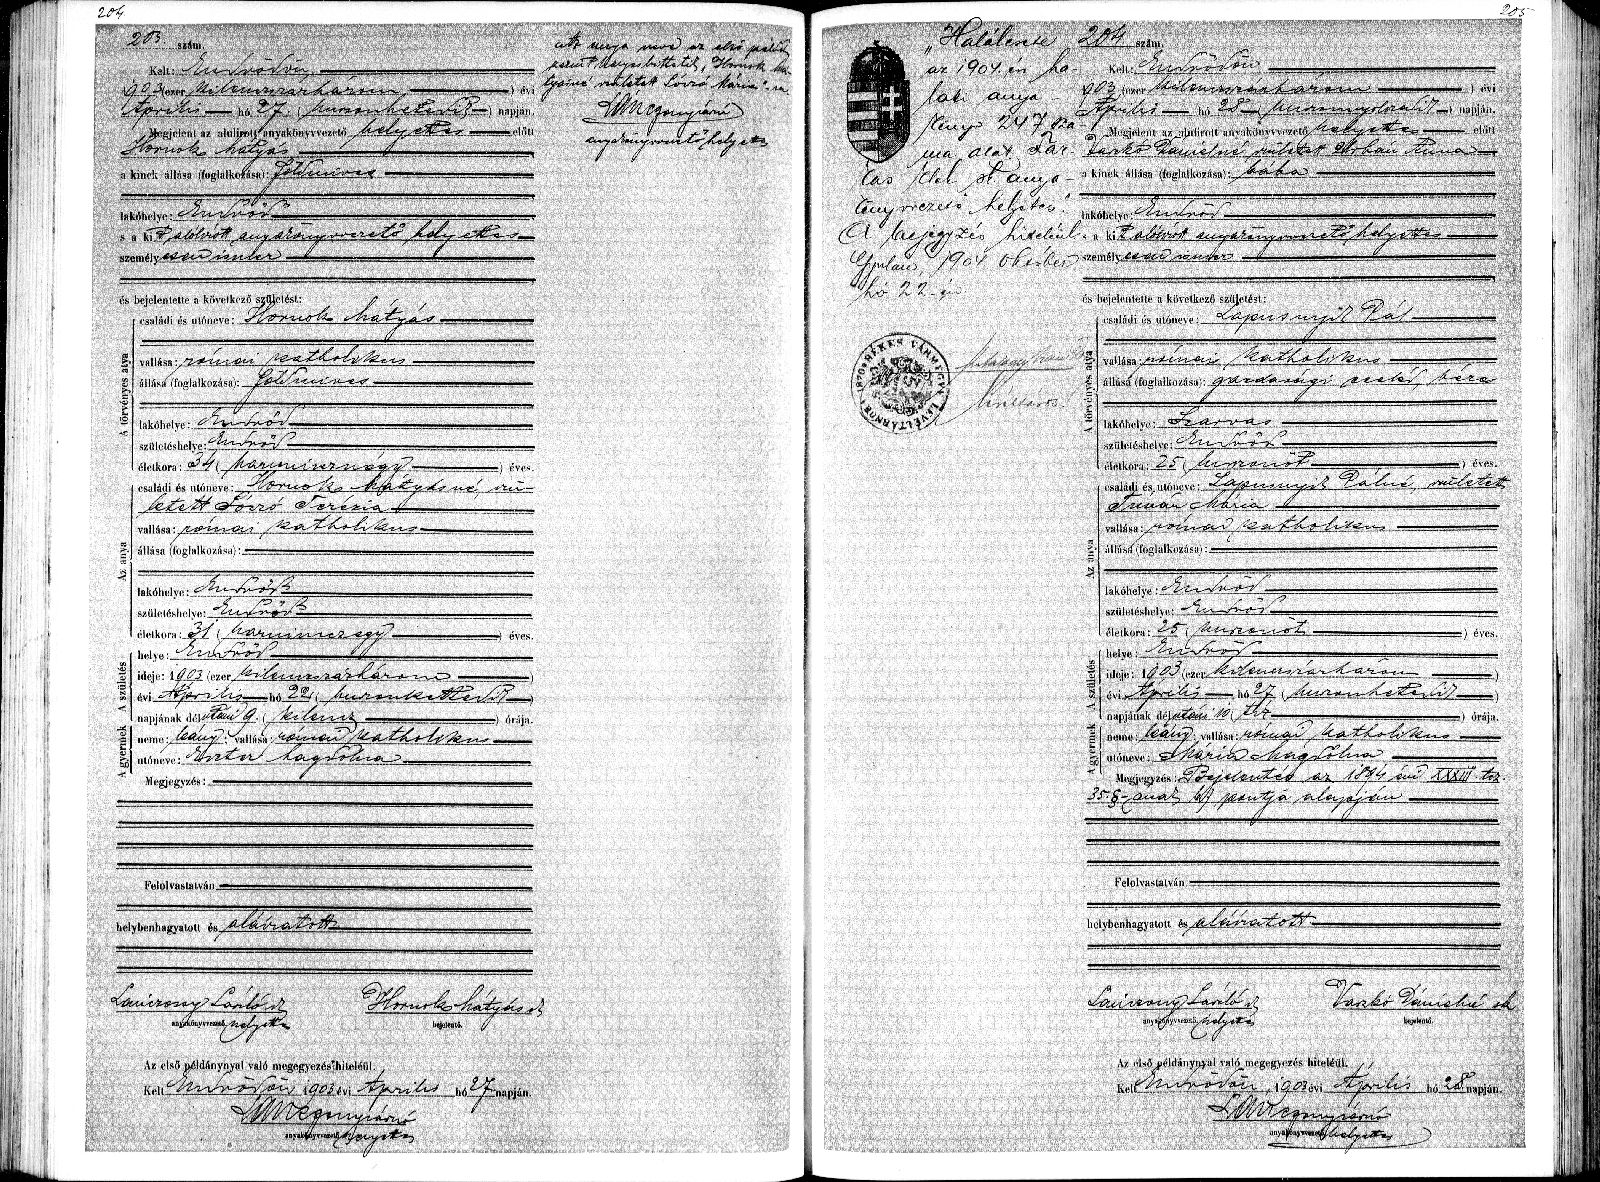 204
203 szám.
Kelt: Endrődön
903 (ezer kilenczszázhárom) évi
Április hó 27 (huszonhetedik) napján.
Megjelent az alulirott anyakönyvvezető helyettes előtt
Hornok Mátyás
a kinek állása (foglalkozása): földmives
lakóhelye: Endrőd
s a kit alólirott anyakönyvvezető helyettes
személyesen ismer
és bejelentette a következő születést:
A törvényes atya
családi és utóneve: Hornok Mátyás
vallása: római katholikus
állása (foglalkozása): földmives
lakóhelye: Endrőd
születéshelye: Endrőd
életkora: 34 (harmincznégy) éves.
Az anya
családi és utóneve: Hornok Mátyásné, szü-
letett Soczó Terézia
vallása: római katholikus
állása (foglalkozása):
lakóhelye: Endrőd
születéshelye: Endrőd
életkora: 31 (harminczegy) éves.
A születés
helye: Endrőd
ideje: 1903 (ezer kilenczszázhárom)
évi Április hó 22 (huszonkettedik)
napjának délutáni 9 (kilencz) órája.
A gyermek
neme: leány; vallása: római katholikus
utóneve: Eszter Magdolna
Megjegyzés:
Felolvastatván
helybenhagyatott és aláiratott
Lánczony László
anyakönyvvezető helyettes
Hornok Mátyás sk
bejelentő.
Az első példánynyal való megegyezés hiteléül.
Kelt Endrődön, 1903 évi Április hó 27 napján.
anyakönyvvezető helyettes
Az anya neve az első példány
szerint helyesbittetett, Hornok Má-
tyásné született Mária-ra
anyakönyvvezető helyettes
205
"Halálesete
az 1904. évi ha-
lálti anya-
könyv 247 szá-
ma alatt. Far-
kas
könyvvezető helyettes."
A bejegyzés hiteléül.
Gyulán, 1904 október
hó 22-én
BÉKES VÁRMEGYE LEVÉLTÁRNOKA 1870
204 szám.
Kelt: Endrődön
903 (ezer kilenczszázhárom) évi
Április hó 28 (huszonnyolczadik) napján.
Megjelent az alulirott anyakönyvvezető helyettes előtt
Varkó Dánielné született Orbán Anna
a kinek állása (foglalkozása): bába
lakóhelye: Endrőd
s a kit alólirott anyakönyvvezető helyettes
személyesen ismer
és bejelentette a következő születést:
A törvényes atya
családi és utóneve: Lapusnyik Pál
vallása: római katholikus
állása (foglalkozása): gazdasági cseléd, béres
lakóhelye: Szarvas
születéshelye: Endrőd
életkora: 25 (huszonöt) éves.
Az anya
családi és utóneve: Lapusnyik Pálné, született
Tímár Mária
vallása: római katholikus
állása (foglalkozása):
lakóhelye: Endrőd
születéshelye: Endrőd
életkora: 25 (huszonöt) éves.
A születés
helye: Endrőd
ideje: 1903 (ezer kilenczszázhárom)
évi Április hó 27 (huszonhetedik)
napjának délutáni 10 (tíz) órája.
A gyermek
neme: leány; vallása: római katholikus
utóneve: Mária Magdolna
Megjegyzés: Bejelentés az 1894 évi XXXIII. tcz.
35. §-ának b) pontja alapján
Felolvastatván
helybenhagyatott és aláiratott
Lánczony László
anyakönyvvezető helyettes
Varkó Dánielné sk
bejelentő.
Az első példánynyal való megegyezés hiteléül.
Kelt Endrődön, 1903 évi Április hó 28 napján.
anyakönyvvezető helyettes